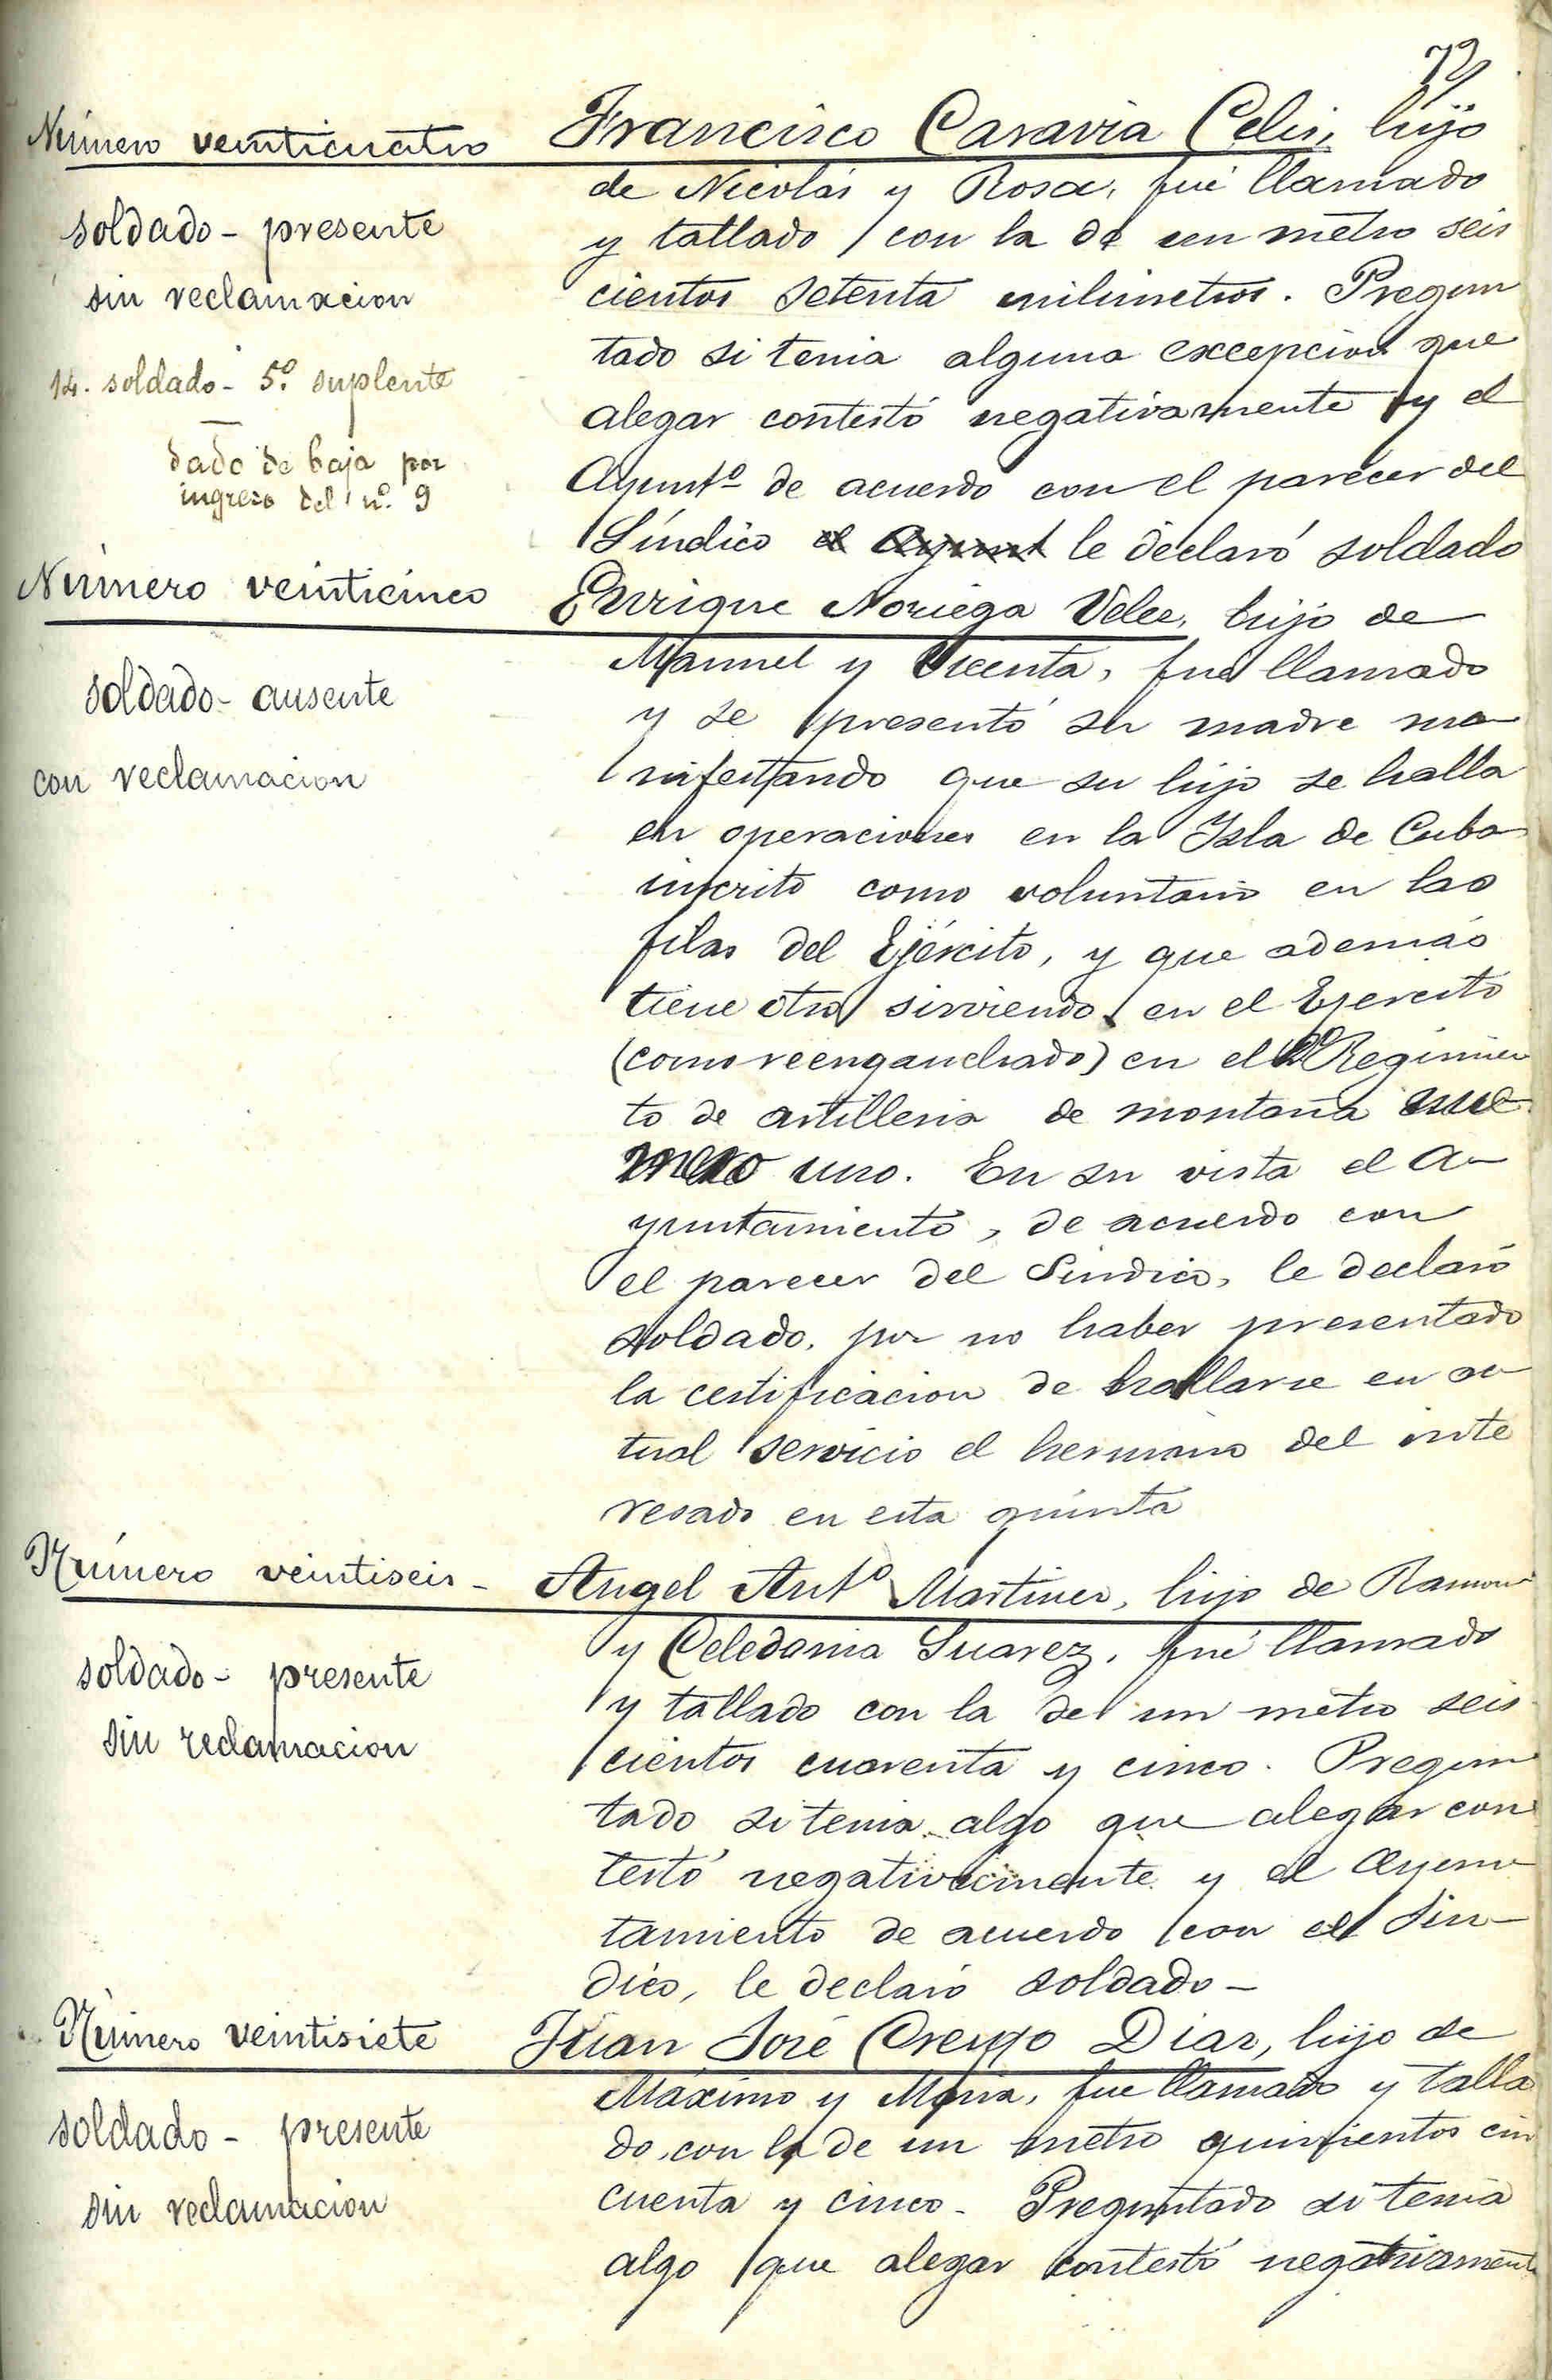 72
Número veinticuatro
Francisco Caravia Celis, hijo
de Nicolás y Rosa, fué llamado
y tallado con la de un metro seis
cientos setenta milimetros. Pregun
tado si tenia alguna excepcion que
alegar contestó negativamente y el
Ayuntº de acuerdo con el parecer del
Síndico el Ayunt le declaró soldado
soldado - presente
sin reclamacion
14. soldado - 5º suplente
dado de baja por
ingreso del nº 9
Número veinticinco
Enrique Noriega Velez, hijo de
Manuel y Vicenta, fué llamado
y se presentó su madre ma
nifestando que su hijo se halla
en operaciones en la Isla de Cuba
inscrito como voluntario en las
filas del Ejército, y que además
tiene otro sirviendo en el Ejercito
(como reenganchado) en el Regimien
to de artilleria de montaña
uno. En su vista el A-
yuntamiento, de acuerdo con
el parecer del Sindico, le declaró
soldado, por no haber presentado
la certificacion de hallarse en ac
tual servicio el hermano del inte
resado en esta quinta
soldado - ausente
con reclamacion
Número veintiseis -
Angel Antº Martinez, hijo de Ramon
y Celedonia Suarez, fué llamado
y tallado con la de un metro seis
cientos cuarenta y cinco. Pregun
tado si tenia algo que alegar con
testó negativamente y el Ayun
tamiento de acuerdo con el Sin-
dico, le declaró soldado -
soldado - presente
sin reclamacion
Número veintisiete
Juan José Crespo Diaz, hijo de
Máximo y Maria, fue llamado y talla
do, con la de un metro quinientos cin
cuenta y cinco - Preguntado si tenia
algo que alegar contestó negativament
soldado - presente
sin reclamacion